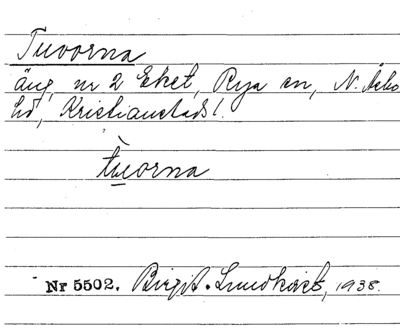 Tuvorna
äng, nr 2 Eket, Rya sn, N. Åsbo
hd, Kristianstads l.
tùorna
Nr 5502. Birgit Lundkvist, 1938.